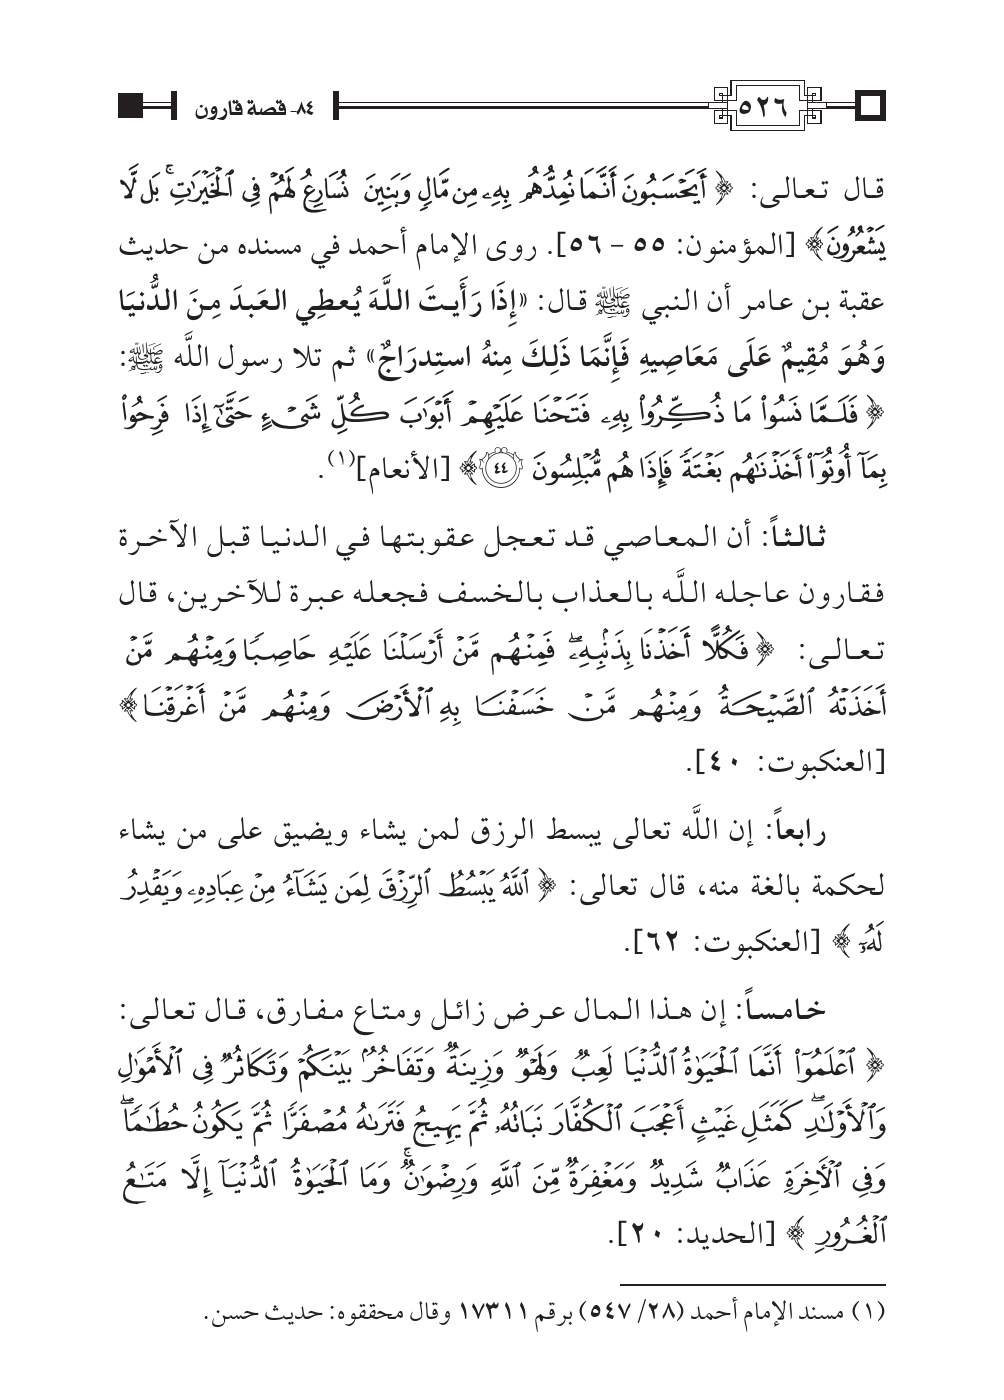 ٥٢٦
٨٤- قصة قارون
قال تعالى: ﴿ أَيَحْسَبُونَ أَنَّمَا نُمِدُّهُم بِهِۦ مِن مَّالٍ وَبَنِينَ نُسَارِعُ لَهُمْ فِي ٱلْخَيْرَٰتِ ۚ بَل لَّا
يَشْعُرُونَ ﴾ [المؤمنون: ٥٥ – ٥٦]. روى الإمام أحمد في مسنده من حديث
عقبة بن عامر أن النبي ﷺ قال: «إِذَا رَأَيتَ اللَّهَ يُعطِي العَبدَ مِنَ الدُّنيَا
وَهُوَ مُقِيمٌ عَلَى مَعَاصِيهِ فَإِنَّمَا ذَلِكَ مِنهُ استِدرَاجٌ» ثم تلا رسول اللَّه ﷺ:
﴿ فَلَمَّا نَسُوا۟ مَا ذُكِّرُوا۟ بِهِۦ فَتَحْنَا عَلَيْهِمْ أَبْوَٰبَ كُلِّ شَىْءٍ حَتَّىٰٓ إِذَا فَرِحُوا۟
بِمَآ أُوتُوٓا۟ أَخَذْنَٰهُم بَغْتَةً فَإِذَا هُم مُّبْلِسُونَ ٤٤ ﴾ [الأنعام](١).
ثالثاً: أن المعاصي قد تعجل عقوبتها في الدنيا قبل الآخرة
فقارون عاجله اللَّه بالعذاب بالخسف فجعله عبرة للآخرين، قال
تعالى: ﴿ فَكُلًّا أَخَذْنَا بِذَنۢبِهِۦ ۖ فَمِنْهُم مَّنْ أَرْسَلْنَا عَلَيْهِ حَاصِبًا وَمِنْهُم مَّنْ
أَخَذَتْهُ ٱلصَّيْحَةُ وَمِنْهُم مَّنْ خَسَفْنَا بِهِ ٱلْأَرْضَ وَمِنْهُم مَّنْ أَغْرَقْنَا ﴾
[العنكبوت: ٤٠].
رابعاً: إن اللَّه تعالى يبسط الرزق لمن يشاء ويضيق على من يشاء
لحكمة بالغة منه، قال تعالى: ﴿ ٱللَّهُ يَبْسُطُ ٱلرِّزْقَ لِمَن يَشَآءُ مِنْ عِبَادِهِۦ وَيَقْدِرُ
لَهُۥٓ ﴾ [العنكبوت: ٦٢].
خامساً: إن هذا المال عرض زائل ومتاع مفارق، قال تعالى:
﴿ ٱعْلَمُوٓا۟ أَنَّمَا ٱلْحَيَوٰةُ ٱلدُّنْيَا لَعِبٌ وَلَهْوٌ وَزِينَةٌ وَتَفَاخُرٌۢ بَيْنَكُمْ وَتَكَاثُرٌ فِي ٱلْأَمْوَٰلِ
وَٱلْأَوْلَٰدِ ۖ كَمَثَلِ غَيْثٍ أَعْجَبَ ٱلْكُفَّارَ نَبَاتُهُۥ ثُمَّ يَهِيجُ فَتَرَىٰهُ مُصْفَرًّا ثُمَّ يَكُونُ حُطَٰمًا ۖ
وَفِي ٱلْءَاخِرَةِ عَذَابٌ شَدِيدٌ وَمَغْفِرَةٌ مِّنَ ٱللَّهِ وَرِضْوَٰنٌ ۚ وَمَا ٱلْحَيَوٰةُ ٱلدُّنْيَآ إِلَّا مَتَٰعُ
ٱلْغُرُورِ ﴾ [الحديد: ٢٠].
(١) مسند الإمام أحمد (٢٨/ ٥٤٧) برقم ١٧٣١١ وقال محققوه: حديث حسن.